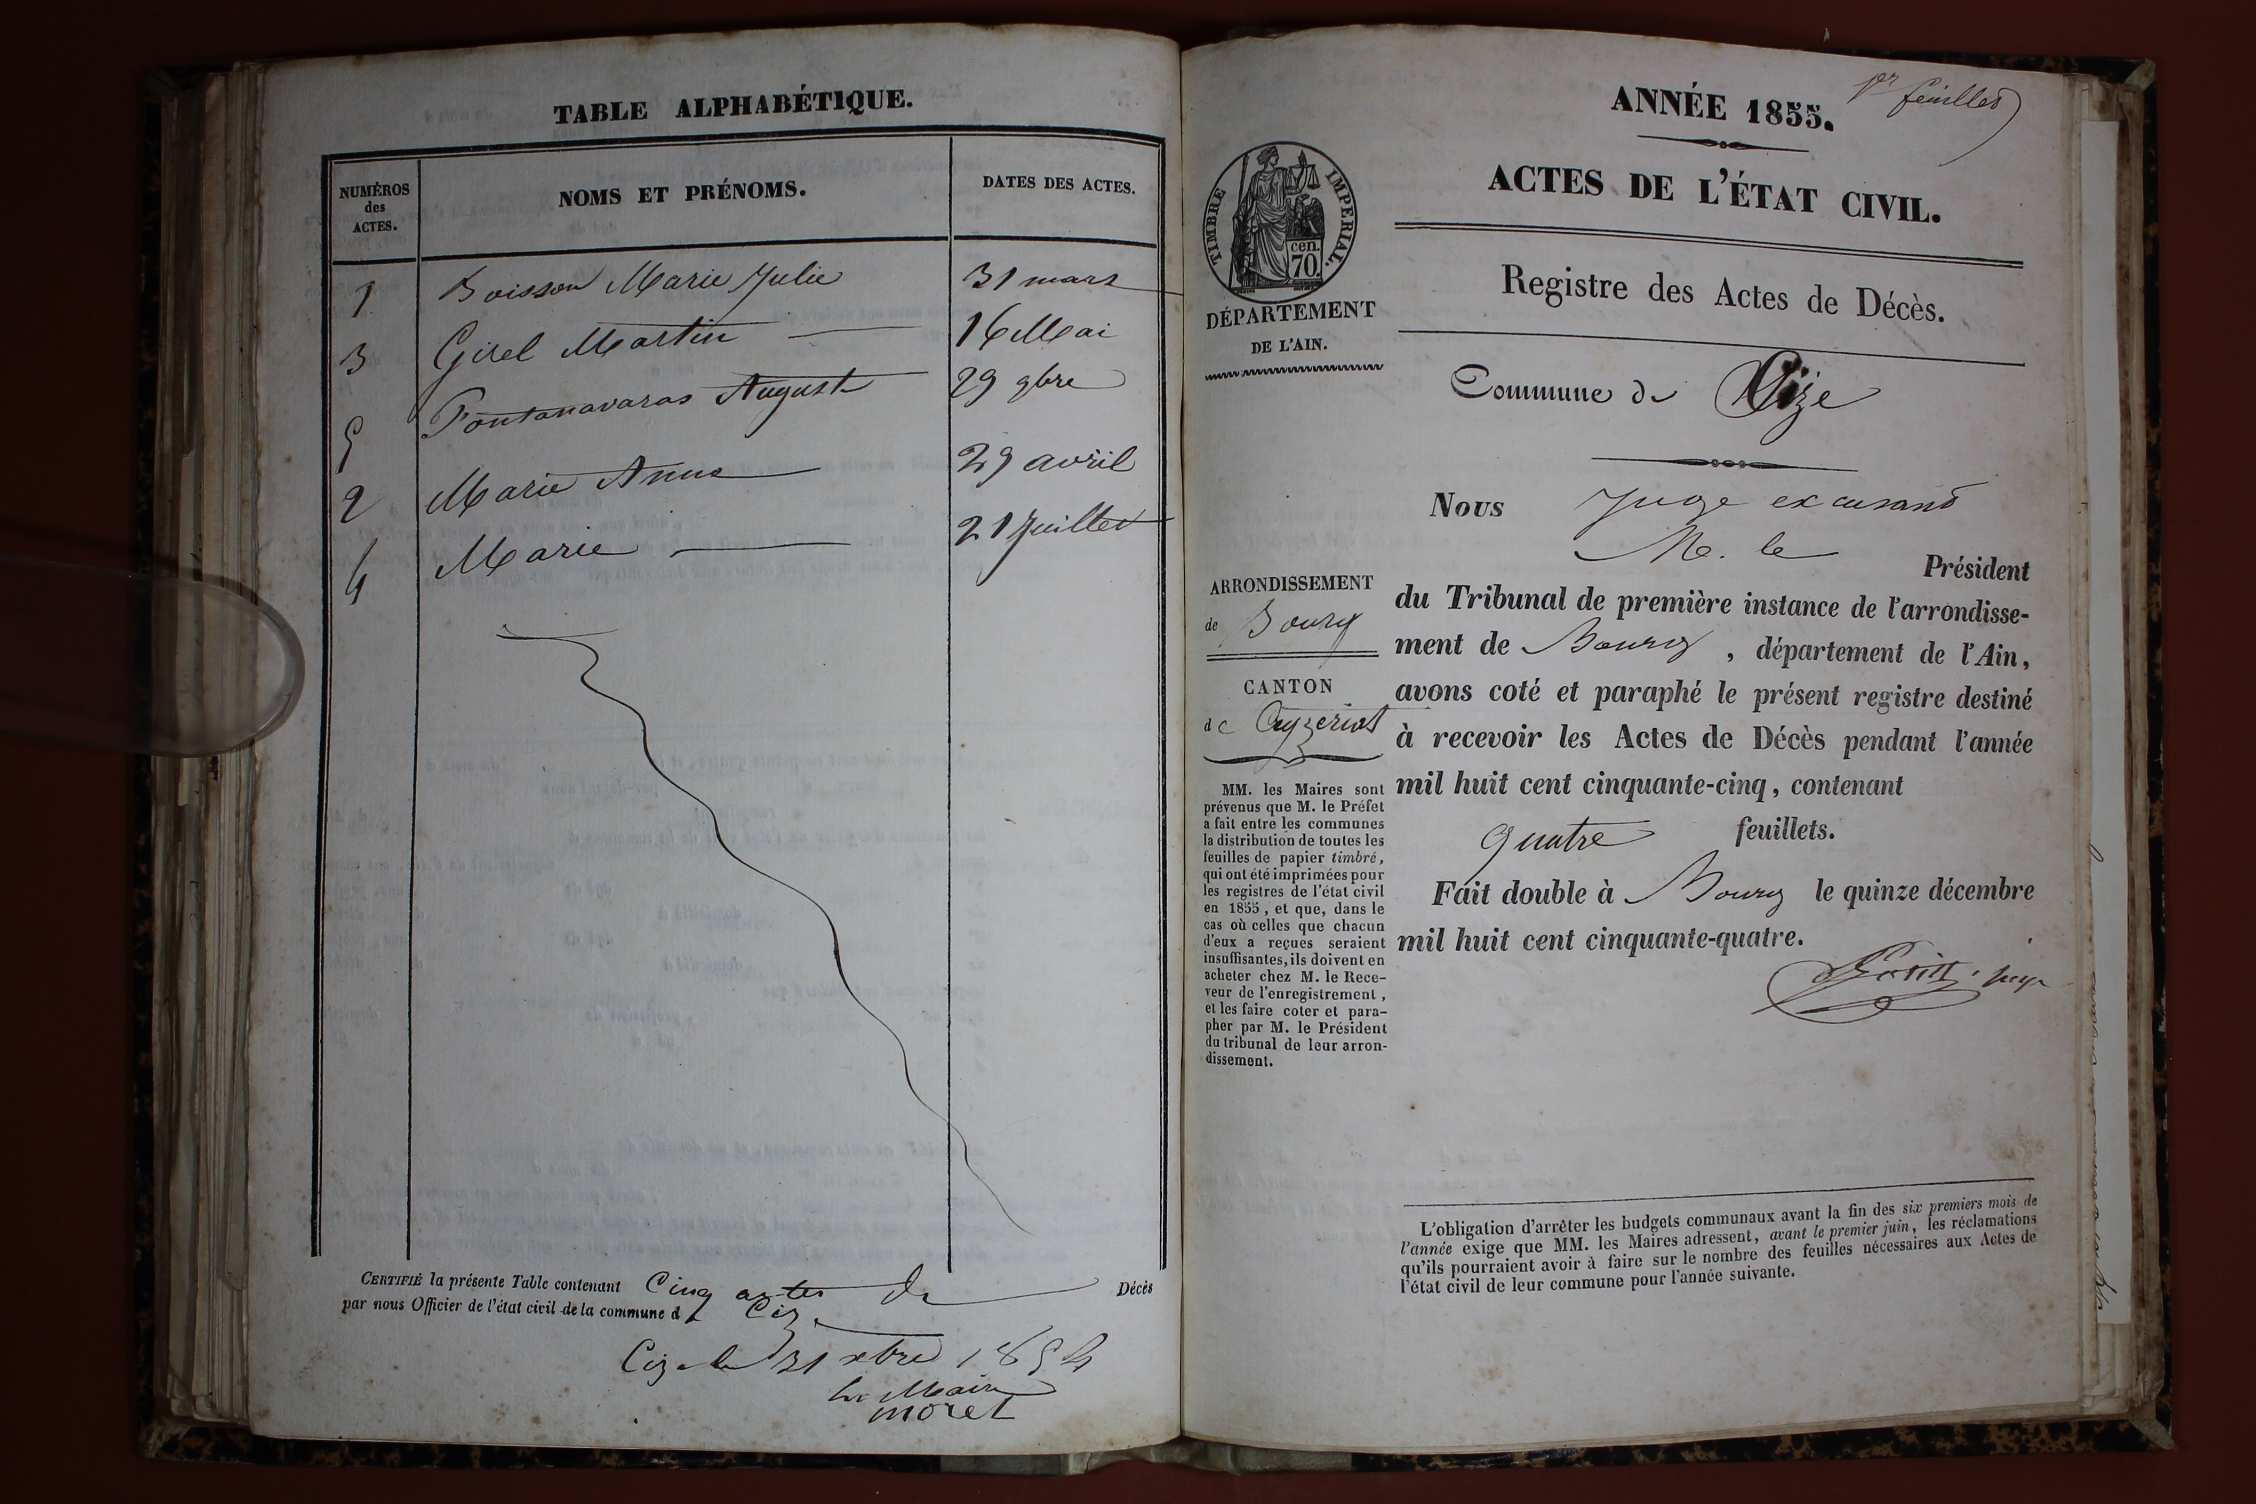 TABLE ALPHABÉTIQUE.
NUMÉROS des ACTES.
NOMS ET PRÉNOMS.
DATES DES ACTES.
1 Boisson Marie Julie 31 mars
3 Girel Martin 16 Mai
5 Fontanavaras August 29 9bre
2 Marie Anne 29 avril
4 Marie 21 Juillet
CERTIFIÉ la présente Table contenant Cinq actes de Décès
par nous Officier de l'état civil de la commune d Cize
Cize le 31 xbre 1854
le Maire
moret
ANNÉE 1855.
feuilles
ACTES DE L'ÉTAT CIVIL.
TIMBRE IMPERIAL.
cen.
70.
DÉPARTEMENT
DE L'AIN.
Registre des Actes de Décès.
Commune de Cize
Nous Juge excusant
M. le Président
du Tribunal de première instance de l'arrondisse-
ment de Bourg, département de l'Ain,
avons coté et paraphé le présent registre destiné
à recevoir les Actes de Décès pendant l'année
mil huit cent cinquante-cinq, contenant
quatre feuillets.
Fait double à Bourg le quinze décembre
mil huit cent cinquante-quatre.
juge
ARRONDISSEMENT
de Bourg
CANTON
de Ceyzeriat
MM. les Maires sont
prévenus que M. le Préfet
a fait entre les communes
la distribution de toutes les
feuilles de papier timbré,
qui ont été imprimées pour
les registres de l'état civil
en 1855, et que, dans le
cas où celles que chacun
d'eux a reçues seraient
insuffisantes, ils doivent en
acheter chez M. le Rece-
veur de l'enregistrement,
et les faire coter et para-
pher par M. le Président
du tribunal de leur arron-
dissement.
L'obligation d'arrêter les budgets communaux avant la fin des six premiers mois de
l'année exige que MM. les Maires adressent, avant le premier juin, les réclamations
qu'ils pourraient avoir à faire sur le nombre des feuilles nécessaires aux Actes de
l'état civil de leur commune pour l'année suivante.